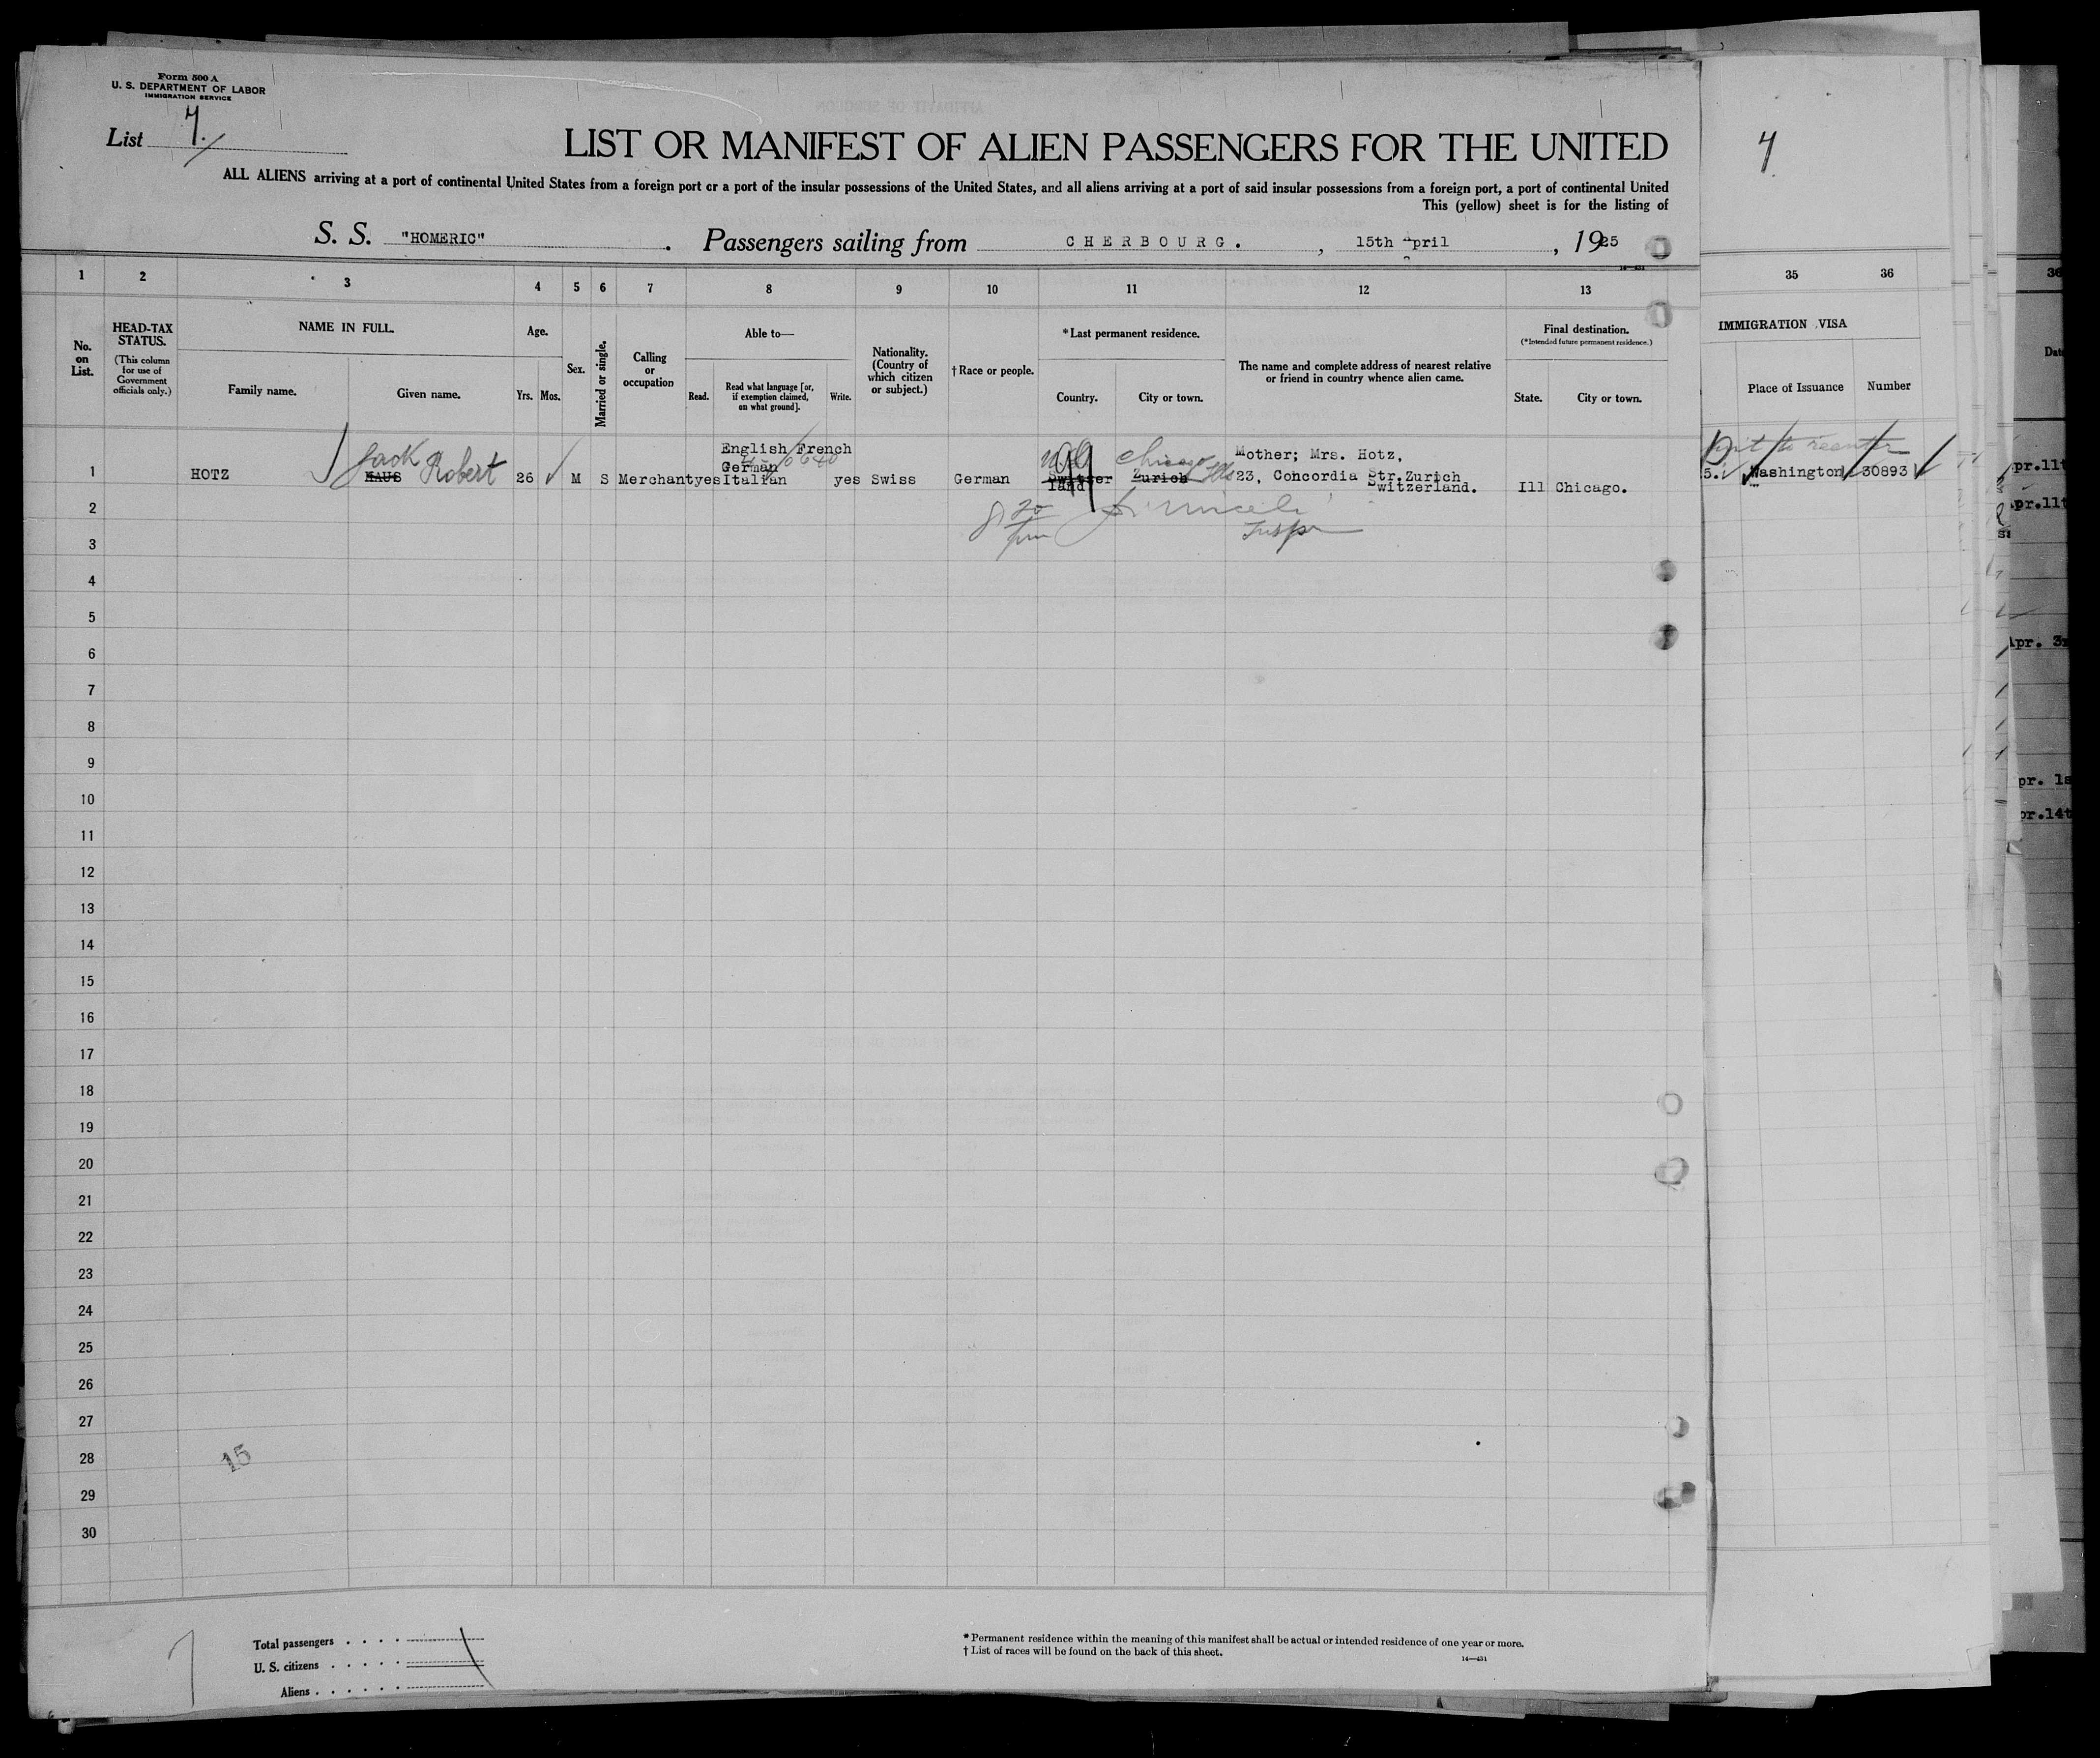 Form 500 A
U. S. DEPARTMENT OF LABOR
IMMIGRATION SERVICE
List 7.
LIST OR MANIFEST OF ALIEN PASSENGERS FOR THE UNITED
ALL ALIENS arriving at a port of continental United States from a foreign port or a port of the insular possessions of the United States, and all aliens arriving at a port of said insular possessions from a foreign port, a port of continental United
This (yellow) sheet is for the listing of
S. S. "HOMERIC" . Passengers sailing from CHERBOURG. , 15th April , 1925
7
1 2 3 4 5 6 7 8 9 10 11 12 13
35 36
No. on List.
HEAD-TAX STATUS.
(This column for use of Government officials only.)
NAME IN FULL.
Family name.
Given name.
Age.
Yrs. Mos.
Sex.
Married or single.
Calling or occupation
Able to—
Read.
Read what language [or, if exemption claimed, on what ground].
Write.
Nationality. (Country of which citizen or subject.)
† Race or people.
* Last permanent residence.
Country.
City or town.
The name and complete address of nearest relative or friend in country whence alien came.
Final destination.
(*Intended future permanent residence.)
State.
City or town.
IMMIGRATION VISA
Place of Issuance
Number
1 HOTZ Jack Robert HAUS 26 M S Merchant yes English French German Italian yes Swiss German Switzerland Chicago Ills Zurich
Mother; Mrs. Hotz,
23, Concordia Str. Zurich
Switzerland.
Ill Chicago.
Pmt to reenter
5. Washington 30893
2
8 20 pm
Insp
3
4
5
6
7
8
9
10
11
12
13
14
15
16
17
18
19
20
21
22
23
24
25
26
27
28
15
29
30
Total passengers . . . .
U. S. citizens . . . . .
Aliens . . . . . .
* Permanent residence within the meaning of this manifest shall be actual or intended residence of one year or more.
† List of races will be found on the back of this sheet.
14—431
36
Dat
pr.11t
pr.11t
Apr. 3r
pr. 1s
pr.14t